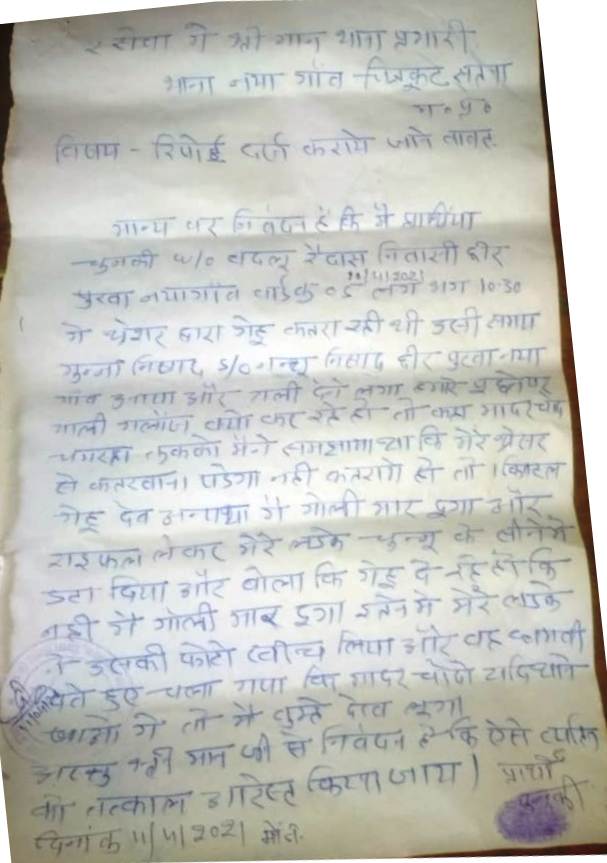 सेवा में श्री मान थाना प्रभारी
थाना नया गाँव चित्रकूट सतना
म० प्र०
विषय - रिपोर्ट दर्ज कराये जाने वावत.
मान्य वर निवेदन है कि मै प्रार्थीया
चुनकी w/o वदलू रैदास निवासी हीर
10/4/2021
पुरवा नयागाँव वार्ड लग भग 10.30
मे थ्रेशर द्वारा गेहू कतरा रही थी उसी समय
मुन्ना निषाद S/o नन्थू निसाद हीर पुरवा नया
गाँव आया और गाली देने लगा हमारे
गाली गलौज क्यो कर रहे हो तो कहा मादरचोद
तुमको मैने समझाया था कि मेरे थ्रेसर
से कतरवाना पडेगा नही कतराते हो तो 1 क्विंटल
गेहू देव अन्यथा मै गोली मार दुगा और
राइफल लेकर मेरे लडके चुन्नू के सीने मे
डटा दिया और वोला कि गेहू दे रहे हो कि
नही मै गोली मार दुगा इतने मे मेरे लडके
ने उसकी फोटो खीच लिया और वह धमकी
देते हुए चला गया कि मादर चोदो यदि थाने
जाओ गे तो मै तुम्हे देख लूगा
अस्तु श्री मान जी से निवेदन है कि ऐसे व्यक्ति
को तत्काल अरेस्ट किया जाय। प्रार्थी
चुनकी
दिनांक 11/4/2021